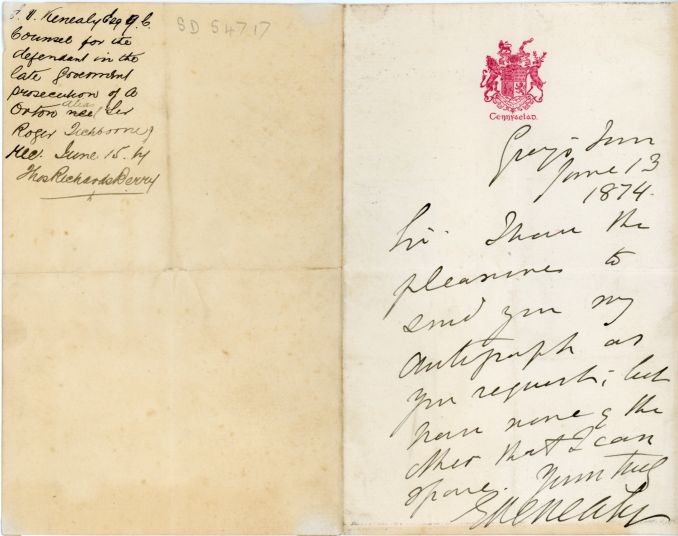 E. V. Kenealy Esq Q. C.
Counsel for the
defendant in the
late Goverment
prosecution of A
Orton alias Sir
Roger Tichborne
Rec. June 15. by
Thos Richards Berry
SD 54717
Cennyaelad.
Gray's Inn
June 13
1874.
Sir. I have the
pleasure to
send you my
autograph as
you request; but
have none of the
other that I can
spare. Yours truly
EVKenealy